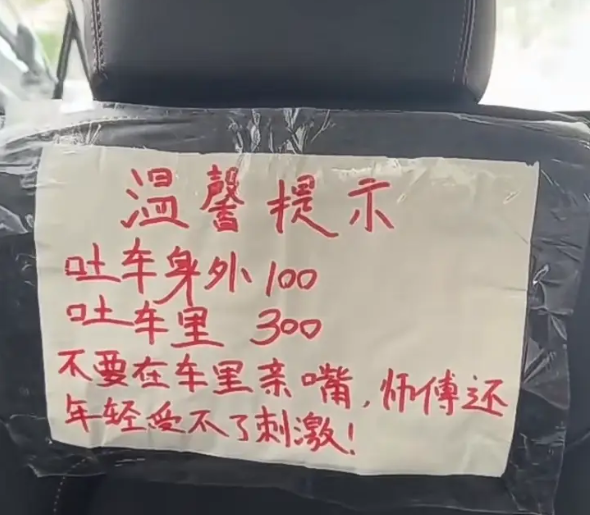 温馨提示
吐车身外100
吐车里 300
不要在车里亲嘴,师傅还
年轻受不了刺激!